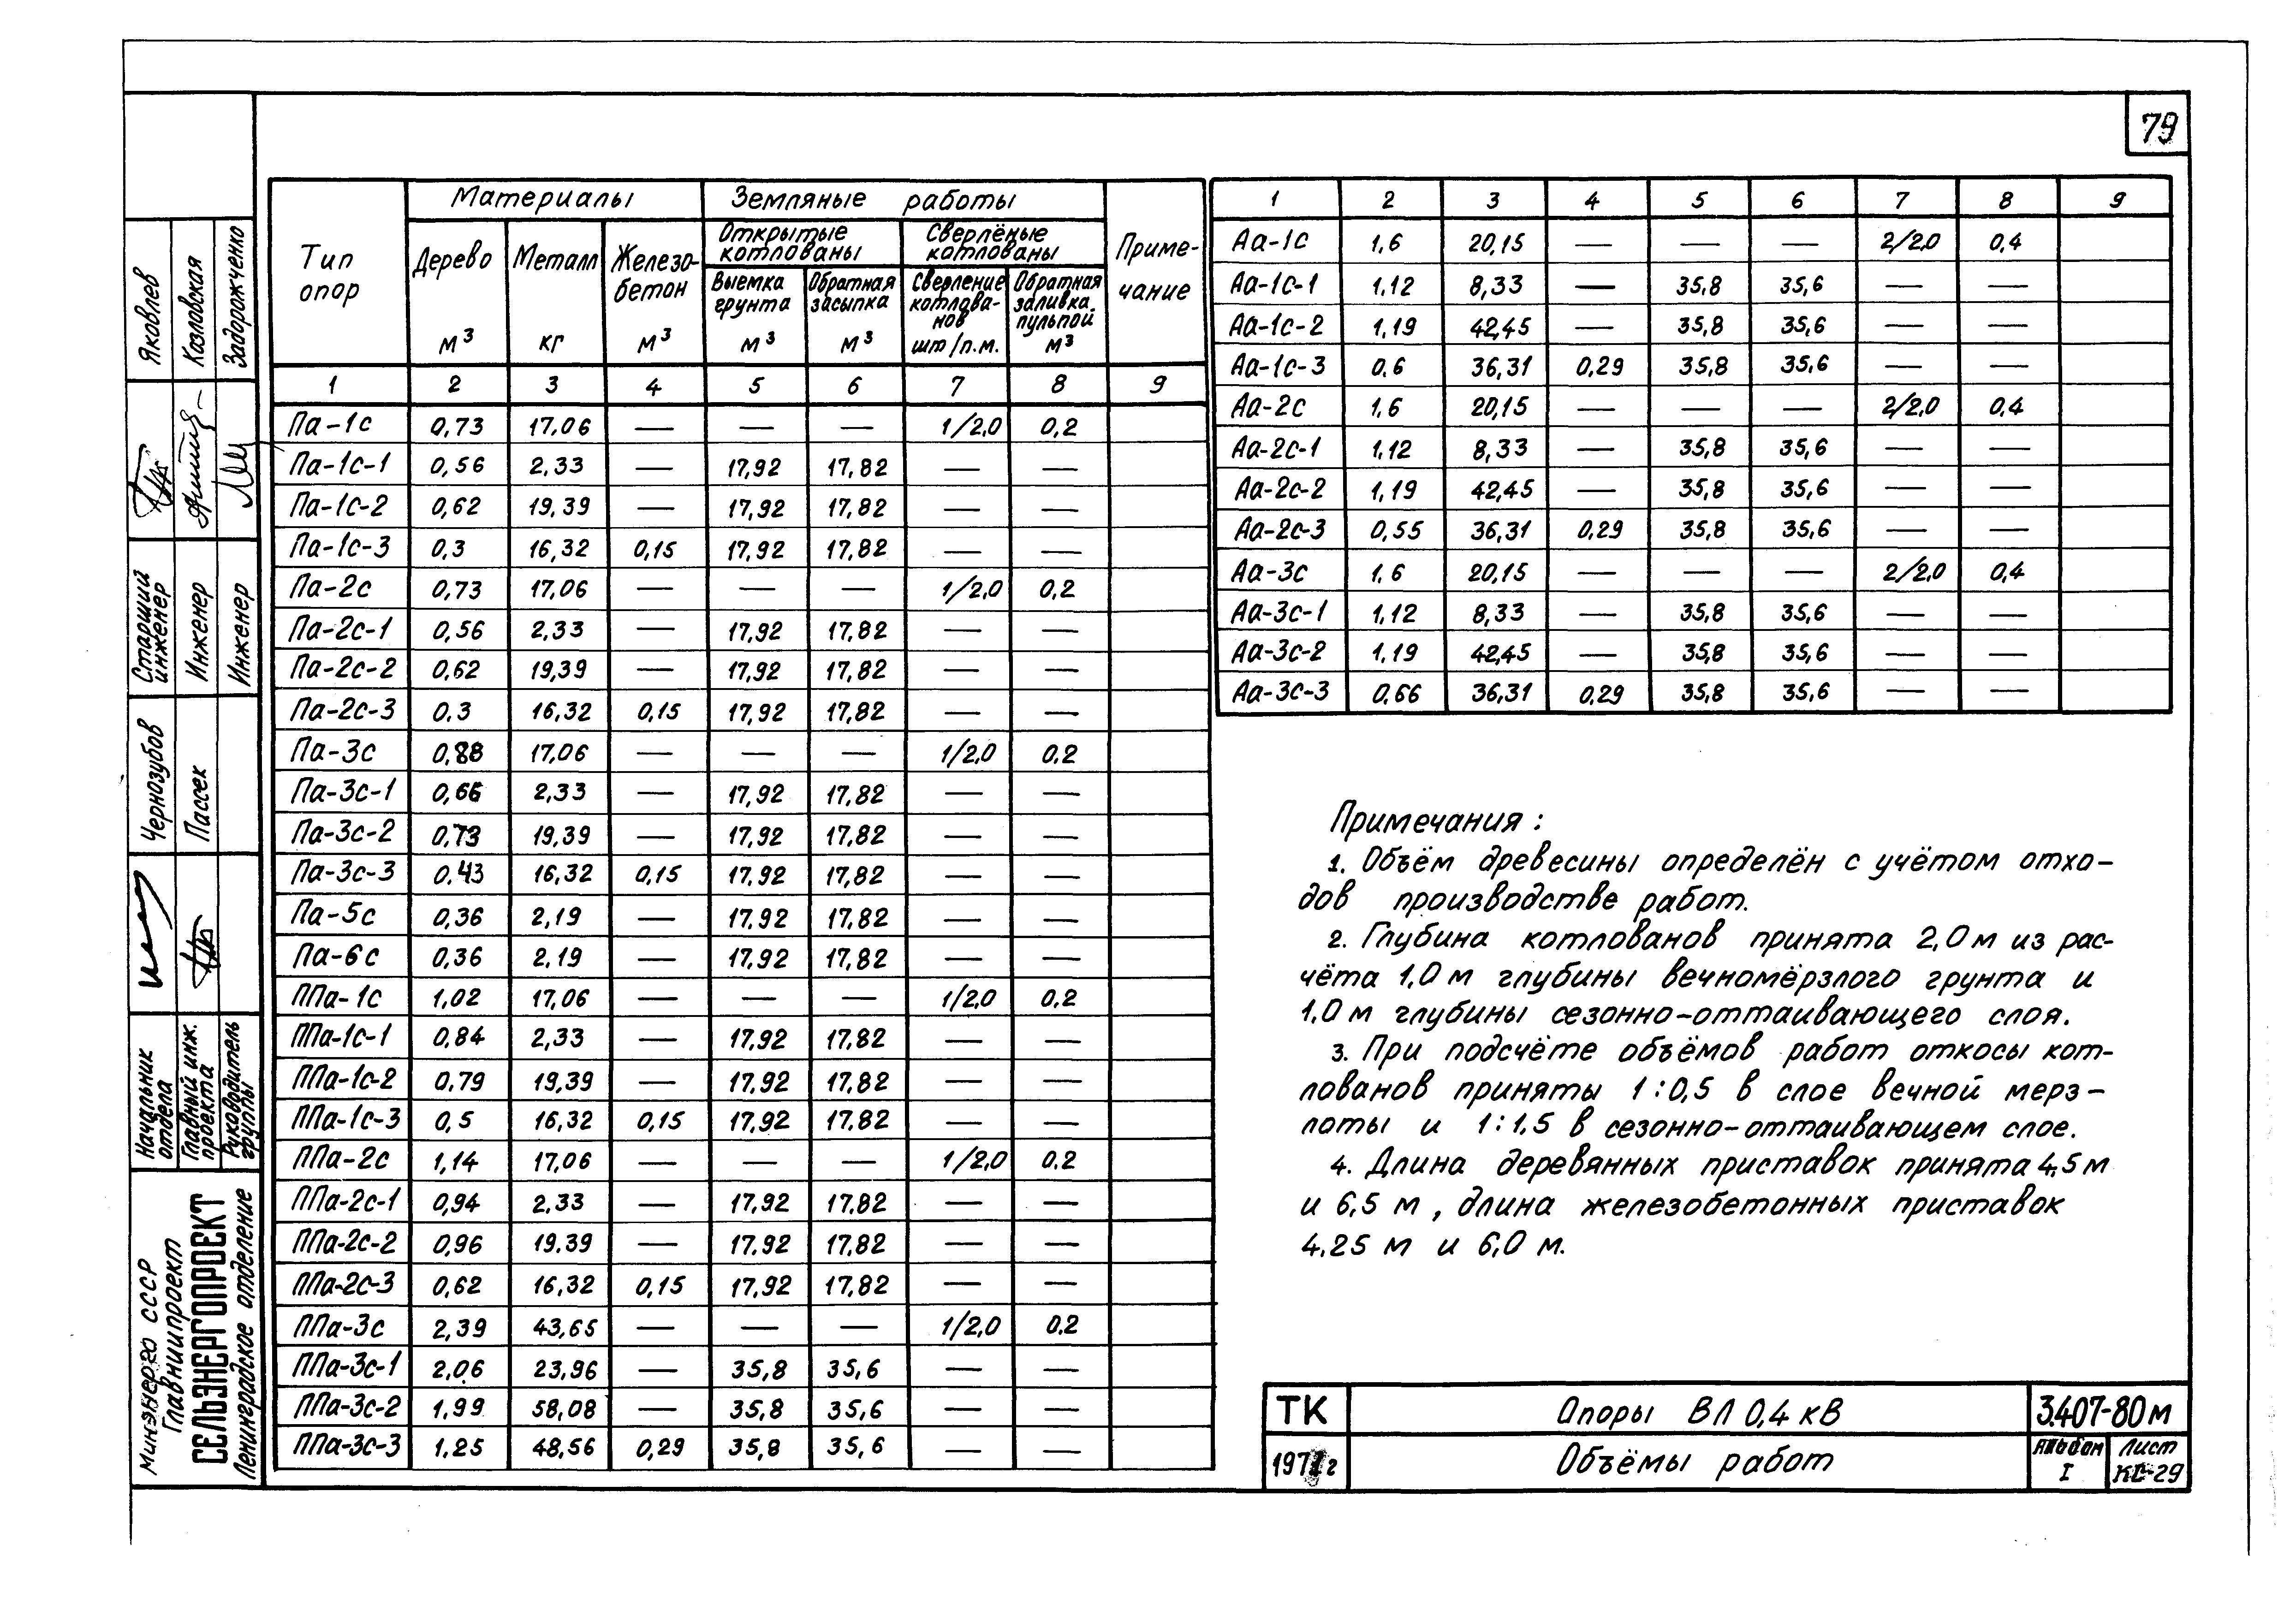 79
Материалы Земляные работы
Тип опор
Дерево м³
Металл кг
Железо-бетон м³
Открытые котлованы
Выемка грунта м³
Обратная засыпка м³
Сверлёные котлованы
Сверление котлова-нов шт/п.м.
Обратная заливка пульпой м³
Приме-чание
1 2 3 4 5 6 7 8 9
Па-1с 0,73 17,06 — — — 1/2,0 0,2
Па-1с-1 0,56 2,33 — 17,92 17,82 — —
Па-1с-2 0,62 19,39 — 17,92 17,82 — —
Па-1с-3 0,3 16,32 0,15 17,92 17,82 — —
Па-2с 0,73 17,06 — — — 1/2,0 0,2
Па-2с-1 0,56 2,33 — 17,92 17,82 — —
Па-2с-2 0,62 19,39 — 17,92 17,82 — —
Па-2с-3 0,3 16,32 0,15 17,92 17,82 — —
Па-3с 0,88 17,06 — — — 1/2,0 0,2
Па-3с-1 0,66 2,33 — 17,92 17,82 — —
Па-3с-2 0,73 19,39 — 17,92 17,82 — —
Па-3с-3 0,43 16,32 0,15 17,92 17,82 — —
Па-5с 0,36 2,19 — 17,92 17,82 — —
Па-6с 0,36 2,19 — 17,92 17,82 — —
ППа-1с 1,02 17,06 — — — 1/2,0 0,2
ППа-1с-1 0,84 2,33 — 17,92 17,82 — —
ППа-1с-2 0,79 19,39 — 17,92 17,82 — —
ППа-1с-3 0,5 16,32 0,15 17,92 17,82 — —
ППа-2с 1,14 17,06 — — — 1/2,0 0,2
ППа-2с-1 0,94 2,33 — 17,92 17,82 — —
ППа-2с-2 0,96 19,39 — 17,92 17,82 — —
ППа-2с-3 0,62 16,32 0,15 17,92 17,82 — —
ППа-3с 2,39 43,65 — — — 1/2,0 0,2
ППа-3с-1 2,06 23,96 — 35,8 35,6 — —
ППа-3с-2 1,99 58,08 — 35,8 35,6 — —
ППа-3с-3 1,25 48,56 0,29 35,8 35,6 — —
1 2 3 4 5 6 7 8 9
Аа-1с 1,6 20,15 — — — 2/2,0 0,4
Аа-1с-1 1,12 8,33 — 35,8 35,6 — —
Аа-1с-2 1,19 42,45 — 35,8 35,6 — —
Аа-1с-3 0,6 36,31 0,29 35,8 35,6 — —
Аа-2с 1,6 20,15 — — — 2/2,0 0,4
Аа-2с-1 1,12 8,33 — 35,8 35,6 — —
Аа-2с-2 1,19 42,45 — 35,8 35,6 — —
Аа-2с-3 0,55 36,31 0,29 35,8 35,6 — —
Аа-3с 1,6 20,15 — — — 2/2,0 0,4
Аа-3с-1 1,12 8,33 — 35,8 35,6 — —
Аа-3с-2 1,19 42,45 — 35,8 35,6 — —
Аа-3с-3 0,66 36,31 0,29 35,8 35,6 — —
Примечания:
1. Объём древесины определён с учётом отхо-
дов производстве работ.
2. Глубина котлованов принята 2,0 м из рас-
чёта 1,0 м глубины вечномёрзлого грунта и
1,0 м глубины сезонно-оттаивающего слоя.
3. При подсчёте объёмов работ откосы кот-
лованов приняты 1:0,5 в слое вечной мерз-
лоты и 1:1,5 в сезонно-оттаивающем слое.
4. Длина деревянных приставок принята 4,5 м
и 6,5 м, длина железобетонных приставок
4,25 м и 6,0 м.
ТК
Опоры ВЛ 0,4 кВ
3.407-80м
Объёмы работ
Альбом I
Лист КС-29
Яковлев
Казловская
Задорожченко
Старший инженер
Инженер
Инженер
Чернозубов
Пассек
Начальник отдела
Главный инж. проекта
Руководитель группы
Минэнерго СССР
Главниипроект
СЕЛЬЭНЕРГОПРОЕКТ
Ленинградское отделение